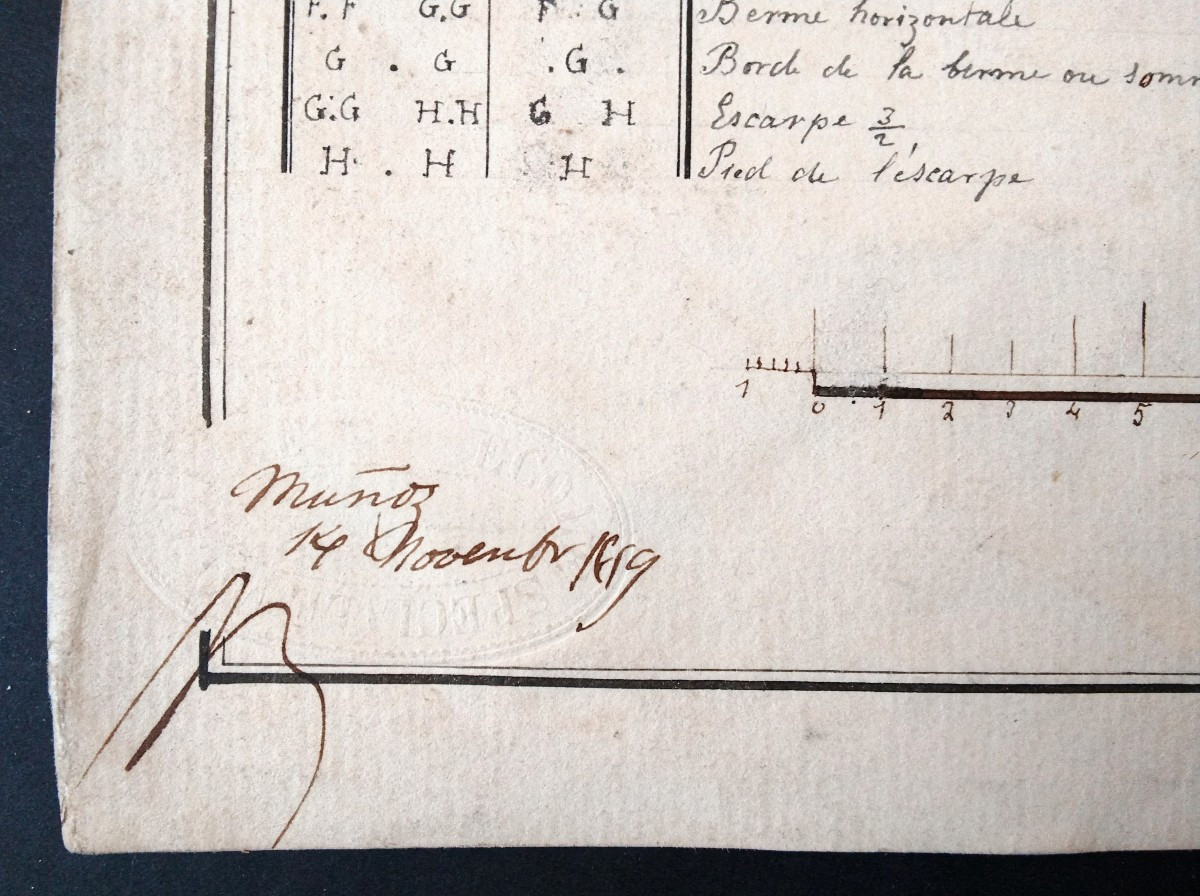 F.F G.G F G Berme horizontale
G . G .G. Bord de la berme ou somm
G.G H.H G H Escarpe 3/2
H . H H Pied de l'éscarpe
1 0 1 2 3 4 5
Muñoz
14 Novembr